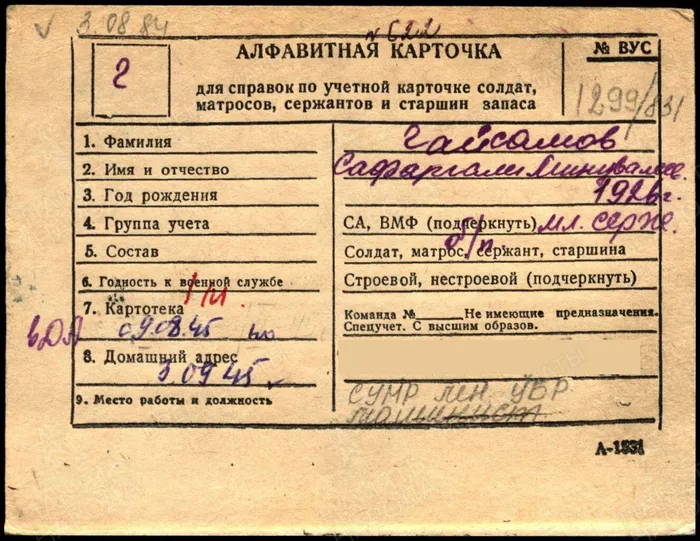 3.08.84
№ 622
АЛФАВИТНАЯ КАРТОЧКА
№ ВУС
г
для справок по учетной карточке солдат,
матросов, сержантов и старшин запаса
1299/831
1. Фамилия
Гайсамов
2. Имя и отчество
Сафаргали
3. Год рождения
1926 г.
4. Группа учета
СА, ВМФ (подчеркнуть) мл. серж.
5. Состав
б/п
Солдат, матрос, сержант, старшина
6. Годность к военной службе
Строевой, нестроевой (подчеркнуть)
7. Картотека
Команда № Не имеющие предназначения.
Спецучет. С высшим образов.
в ДА с 9.08.45 по
8. Домашний адрес
3.09.45
9. Место работы и должность
СУМР УБР
машинист
А-1331